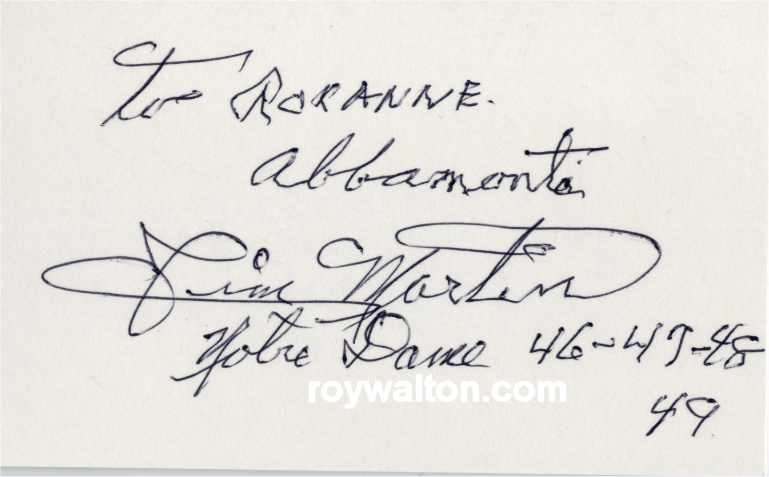 To ROXANNE.
Abbamonte
Jim Martin
Notre Dame 46-47-48
roywalton.com
49